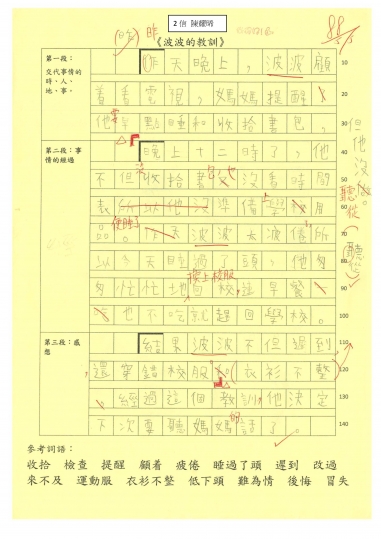 2信 陳耀明
《波波的教訓》
昨
第一段：
交代事情的
時、人、
地、事。
昨天晚上，波波顧
着看電視，媽媽提醒
他早點睡和收拾書包，
第二段：事
情的經過
晚上十二時了，他
不但沒收拾書包也沒看時間
表
準備上學
用
品。
波波太疲倦所
以今天睡過了頭，他匆
匆忙忙地換上校服
也不吃就趕回學校。
第三段：感
想
結果波波不但遲到
還穿錯校服(衣衫不整
經過這個教訓，他決定
下次要聽媽媽的話了。
但他沒
聽從
(聽從)
10
20
30
40
50
60
70
80
90
100
110
120
130
140
參考詞語：
收拾 檢查 提醒 顧着 疲倦 睡過了頭 遲到 改過
來不及 運動服 衣衫不整 低下頭 難為情 後悔 冒失